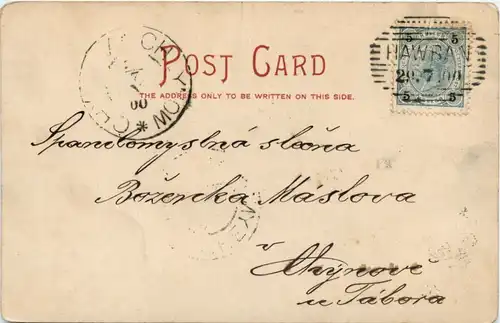 POST CARD
THE ADDRESS ONLY TO BE WRITTEN ON THIS SIDE.
5 5
HAWRAN
28·7·00
5 5
CHÝNOW *
00
Spanilomyslná slečna
Boženka Máslova
v
Chýnově
u Tábora